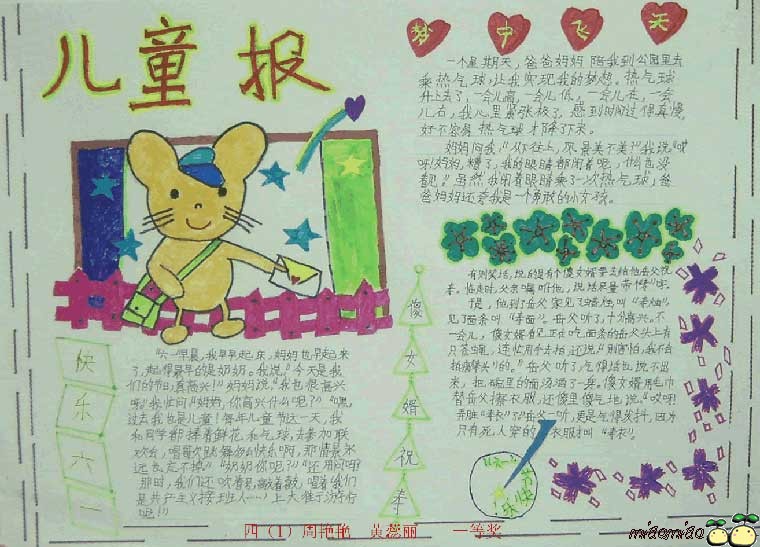 儿童报
梦中飞天
一个星期天,爸爸妈妈陪我到公园里去
乘热气球,让我实现我的梦想。热气球
升上去了,一会儿高,一会儿低,一会儿左,一会
儿右,我心里紧张极了,感到时间过得真慢,
好不容易热气球才降下来。
妈妈问我:"从上往,风景美不美?"我说:"哎
呀!妈妈,糟了,我的眼睛都闭着呢,什么也没
看见。"虽然我闭着眼睛乘了一次热气球,爸
爸妈妈还夸我是一个勇敢的小女孩。
快乐六一
"六一"早晨,我早早起床,妈妈也早起来
了,起得最早的是奶奶。我说:"今天是我
们的节日,真高兴!"妈妈说:"我也很高兴
呀!"我忙问:"妈妈,你高兴什么呢?""嘿,
过去我也是儿童!每年儿童节这一天,我
和同学都捧着鲜花和气球,去参加联
欢会,唱歌
永远忘不掉。""奶奶你呢?""还用问
那时,我们还
是共产主义接班人……上大
呢!!!
傻女婿祝寿
有则笑话,说的是有个傻女婿要去给他岳父祝
寿。临走时,父亲嘱咐他,说话尽量带"寿"字。
于是,他到了岳父家见了蜡烛叫"寿烛",
见了面条叫"寿面"。岳父听了,十分高兴。不
一会儿,傻女婿看见正在吃面条的岳父头上有
只苍蝇,连忙用手去拍,还说:
拍瘪寿头的。"岳父听了,气得话也说不出
来,把碗里的面泼洒了一身。傻女婿用毛巾
替岳父擦衣服,还傻里傻气地说:"哎呀!
弄脏"寿衣"了!"岳父一听,更是气得发抖,因为
只有死人穿的衣服才叫"寿衣"。
"六一"
节
快乐
四(1)周艳艳 黄蕊丽 一等奖
miaomiao